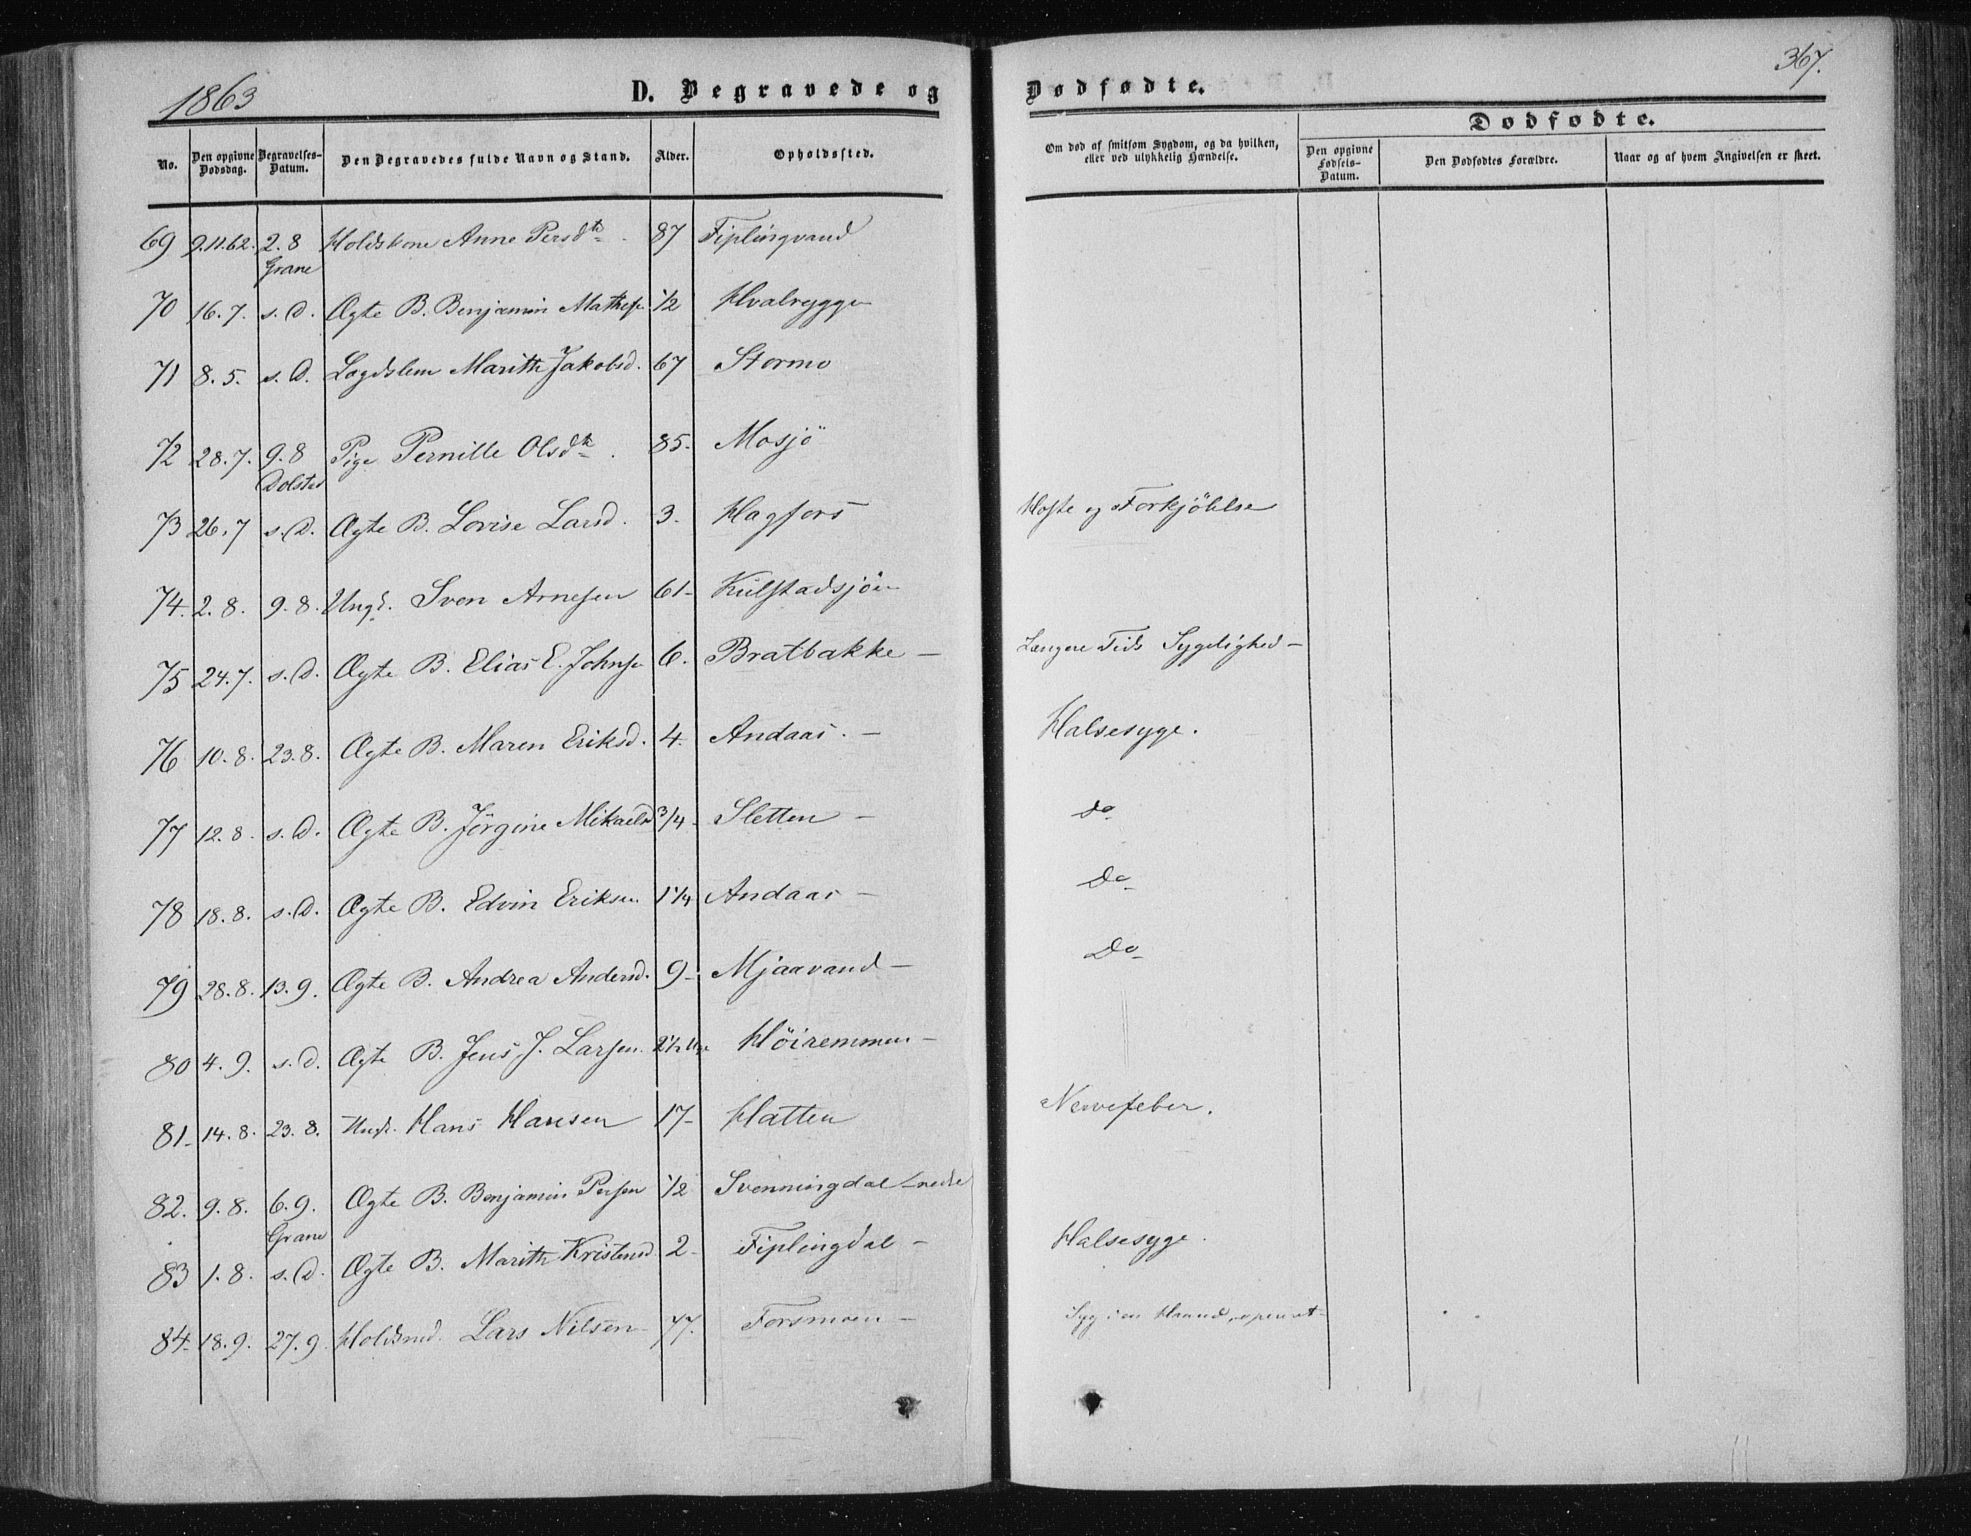 1863
D. Begravede og Dødfødte.
367.
No. Den opgivne Dødsdag. Begravelses-Datum. Den Begravedes fulde Navn og Stand. Alder. Opholdssted. Om død af smitsom Sygdom, og da hvilken, eller ved ulykkelig Hændelse.
Dødfødte.
Den opgivne Fødsels-Datum. Den Dødfødtes Forældre. Naar og af hvem Angivelsen er skeet.
69 9.11.62. 2.8 Grane Holdskone Anne Persdtr. 87 Fiplingvand
70 16.7. s.D. Ægte B. Benjamin Mathese 1/2 Hvalrygge
71 8.5. s.D. Lægdslem Marith Jakobsd. 67 Stormo
72 28.7. 9.8 Dolstad Pige Pernille Olsdtr. 85- Mosjö
73 26.7 s.D. Ægte B. Lovise Larsd. 3. Hagfors Hoste og Forkjölelse
74. 2.8. 9.8. Ungk. Sven Arnesen 61- Kulstadsjöen
75 24.7. s.D. Ægte B. Elias E. Johnse 6. Bratbakke - Længere Tids Sygelighed -
76 10.8. 23.8. Ægte B. Maren Eriksd. 4. Andaas. - Halsesyge.
77 12.8. s.D. Ægte B. Jörgine Mikaelsd 3/4 - Sletten - do
78 18.8. s.D. Ægte B. Edvin Eriksen 1 1/4 Andaas - Do
79 28.8. 13.9. Ægte B. Andrea Andersd. 9- Mjaavand - Do
80 4.9. s.D. Ægte B. Jens J. Larsen 2 1/2 Uge Höiremmen -
81- 14.8. 23.8. Ungk. Hans Hansen 17- Hatten Nervefeber.
82. 9.8. 6.9. Grane Ægte B. Benjamin Persen 1/2 Svenningdal nedre
83 1.8. s.D. Ægte B. Marith Kristensd 2- Fiplingdal - Halsesyge.
84- 18.9. 27.9 Holdsmd. Lars Nilsen - 77. Forsmoen - Syg i en Haand, operat-